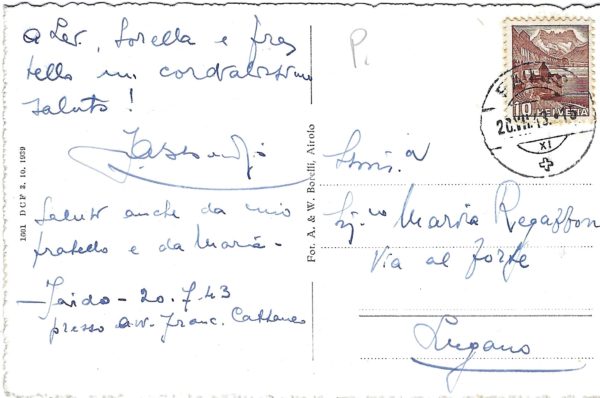 a Lei, Sorella e fra
tello un cordialissimo
saluto!
Saluti anche da mio
fratello e da Maria -
- Faido - 20.7.43
presso avv. Franc. Cattaneo
1601 DCF 2. 10. 1939
Fot. A. & W. Borelli, Airolo
P.
10 HELVETIA
XI
Maria Regazzoni
Via al Forte
Lugano